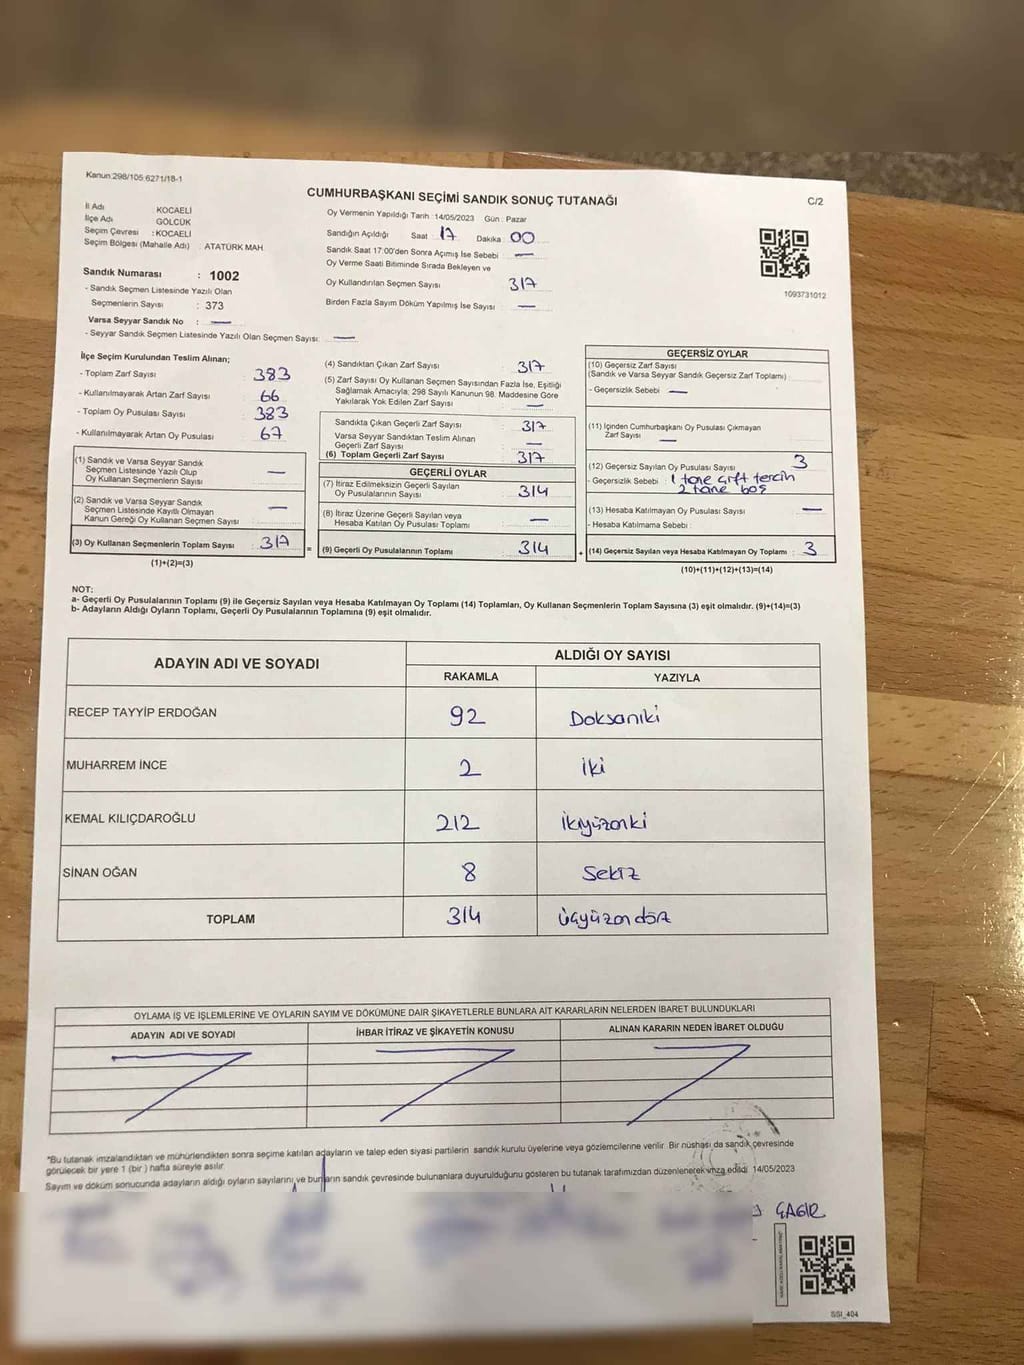 Kanun:298/105 6271/18-1
CUMHURBAŞKANI SEÇİMİ SANDIK SONUÇ TUTANAĞI
C/2
İl Adı KOCAELİ
İlçe Adı GÖLCÜK
Seçim Çevresi : KOCAELİ
Seçim Bölgesi (Mahalle Adı) : ATATÜRK MAH
Sandık Numarası : 1002
- Sandık Seçmen Listesinde Yazılı Olan
Seçmenlerin Sayısı : 373
Varsa Seyyar Sandık No : —
- Seyyar Sandık Seçmen Listesinde Yazılı Olan Seçmen Sayısı: —
Oy Vermenin Yapıldığı Tarih :14/05/2023 Gün : Pazar
Sandığın Açıldığı Saat 17 Dakika 00
Sandık Saat 17:00'den Sonra Açımış İse Sebebi —
Oy Verme Saati Bitiminde Sırada Bekleyen ve
Oy Kullandırılan Seçmen Sayısı 317
Birden Fazla Sayım Döküm Yapılmış İse Sayısı —
1093731012
İlçe Seçim Kurulundan Teslim Alınan;
- Toplam Zarf Sayısı 383
- Kullanılmayarak Artan Zarf Sayısı 66
- Toplam Oy Pusulası Sayısı 383
- Kullanılmayarak Artan Oy Pusulası 67
(1) Sandık ve Varsa Seyyar Sandık
Seçmen Listesinde Yazılı Olup
Oy Kullanan Seçmenlerin Sayısı —
(2) Sandık ve Varsa Seyyar Sandık
Seçmen Listesinde Kayıtlı Olmayan
Kanun Gereği Oy Kullanan Seçmen Sayısı —
(3) Oy Kullanan Seçmenlerin Toplam Sayısı 317
(1)+(2)=(3)
(4) Sandıktan Çıkan Zarf Sayısı 317
(5) Zarf Sayısı Oy Kullanan Seçmen Sayısından Fazla İse, Eşitliği
Sağlamak Amacıyla, 298 Sayılı Kanunun 98. Maddesine Göre
Yakılarak Yok Edilen Zarf Sayısı —
Sandıkta Çıkan Geçerli Zarf Sayısı 317
Varsa Seyyar Sandıktan Teslim Alınan
Geçerli Zarf Sayısı —
(6) Toplam Geçerli Zarf Sayısı 317
GEÇERLİ OYLAR
(7) İtiraz Edilmeksizin Geçerli Sayılan
Oy Pusulalarının Sayısı 314
(8) İtiraz Üzerine Geçerli Sayılan veya
Hesaba Katılan Oy Pusulası Toplamı —
= (9) Geçerli Oy Pusulalarının Toplamı 314
GEÇERSİZ OYLAR
(10) Geçersiz Zarf Sayısı
(Sandık ve Varsa Seyyar Sandık Geçersiz Zarf Toplamı)
- Geçersizlik Sebebi : —
(11) İçinden Cumhurbaşkanı Oy Pusulası Çıkmayan
Zarf Sayısı —
(12) Geçersiz Sayılan Oy Pusulası Sayısı 3
- Geçersizlik Sebebi : 1 tane çift tercih
2 tane boş
(13) Hesaba Katılmayan Oy Pusulası Sayısı —
- Hesaba Katılmama Sebebi :
+ (14) Geçersiz Sayılan veya Hesaba Katılmayan Oy Toplamı : 3
(10)+(11)+(12)+(13)=(14)
NOT:
a- Geçerli Oy Pusulalarının Toplamı (9) ile Geçersiz Sayılan veya Hesaba Katılmayan Oy Toplamı (14) Toplamları, Oy Kullanan Seçmenlerin Toplam Sayısına (3) eşit olmalıdır. (9)+(14)=(3)
b- Adayların Aldığı Oyların Toplamı, Geçerli Oy Pusulalarının Toplamına (9) eşit olmalıdır.
ADAYIN ADI VE SOYADI ALDIĞI OY SAYISI
RAKAMLA YAZIYLA
RECEP TAYYİP ERDOĞAN 92 Doksaniki
MUHARREM İNCE 2 iki
KEMAL KILIÇDAROĞLU 212 ikiyüzonki
SİNAN OĞAN 8 Sekiz
TOPLAM 314 üçyüzondört
OYLAMA İŞ VE İŞLEMLERİNE VE OYLARIN SAYIM VE DÖKÜMÜNE DAİR ŞİKAYETLERLE BUNLARA AİT KARARLARIN NELERDEN İBARET BULUNDUKLARI
ADAYIN ADI VE SOYADI İHBAR İTİRAZ VE ŞİKAYETİN KONUSU ALINAN KARARIN NEDEN İBARET OLDUĞU
*Bu tutanak imzalandıktan ve mühürlendikten sonra seçime katılan adayların ve talep eden siyasi partilerin sandık kurulu üyelerine veya gözlemcilerine verilir. Bir nüshası da sandık çevresinde
görülecek bir yere 1 (bir) hafta süreyle asılır.
Sayım ve döküm sonucunda adayların aldığı oyların sayılarını ve bunların sandık çevresinde bulunanlara duyurulduğunu gösteren bu tutanak tarafımızdan düzenlenerek imza edildi 14/05/2023
ÇAĞIR
SSI_404